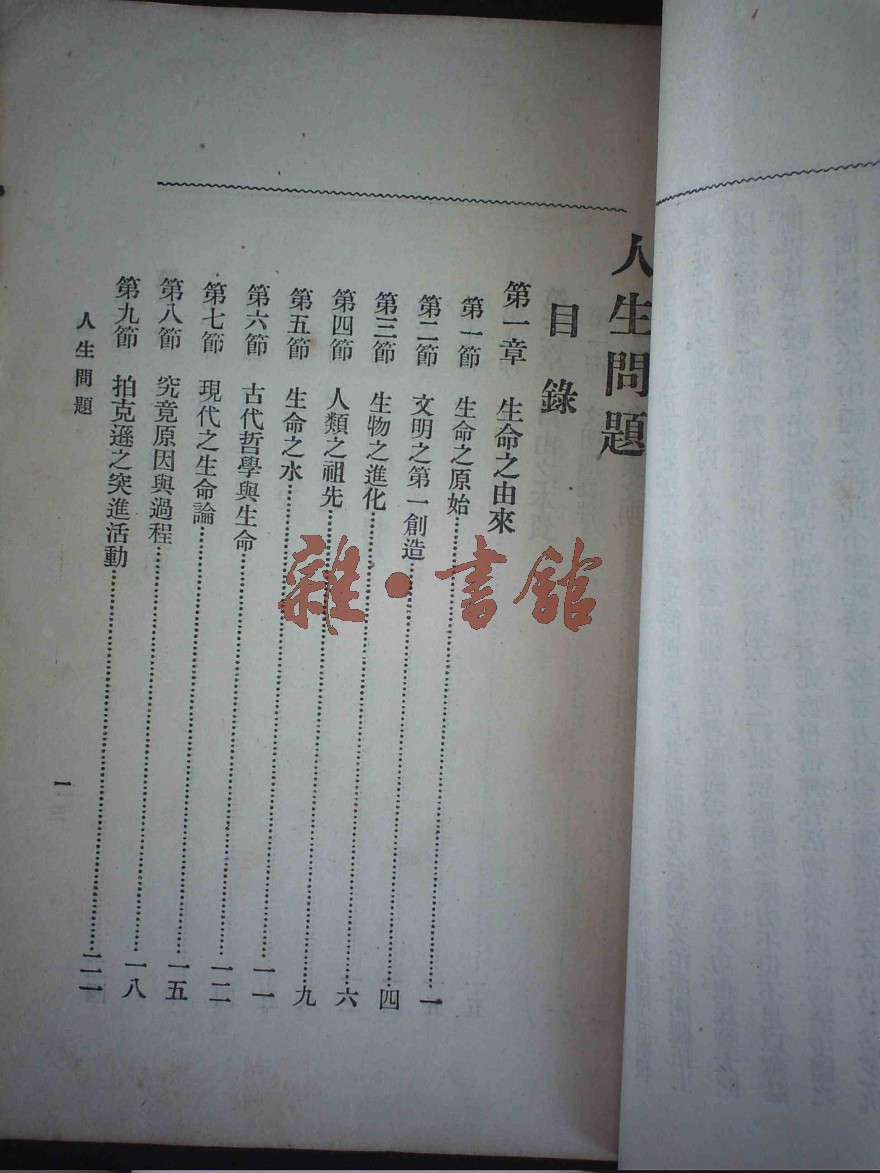 人生問題
目錄
第一章 生命之由來
第一節 生命之原始………一
第二節 文明之第一創造………四
第三節 生物之進化………六
第四節 人類之祖先………九
第五節 生命之水………一一
第六節 古代哲學與生命………一二
第七節 現代之生命論………一五
第八節 究竟原因與過程………一八
第九節 拍克遜之突進活動………二一
人生問題
一
雜·書館